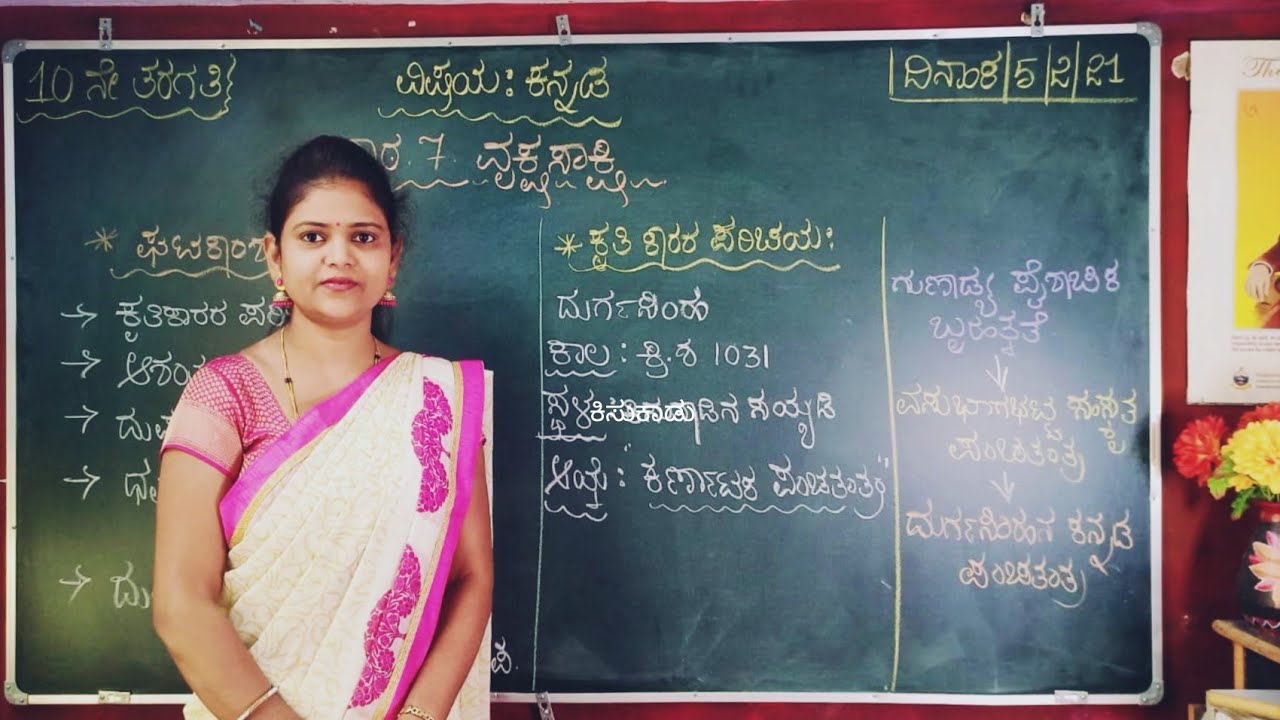 10 ನೇ ತರಗತಿ
ವಿಷಯ: ಕನ್ನಡ
ದಿನಾಂಕ/5/2/21
7. ವೃಕ್ಷಸಾಕ್ಷಿ
* ಘಟಕಾಂಶ
→ ಕೃತಿಕಾರರ ಪರಿ
→
→
→
→
* ಕೃತಿಕಾರರ ಪರಿಚಯ:
ದುರ್ಗಸಿಂಹ
ಕಾಲ: ಕ್ರಿ.ಶ 1031
ಸ್ಥಳ ಕಿಸುಕಾಡು ಸಯ್ಯಡಿ
ಕೃತಿ: "ಕರ್ಣಾಟಕ ಪಂಚತಂತ್ರ"
ಗುಣಾಡ್ಯ ಪೈಶಾಚಿಕ
ಬೃಹತ್ಕತೆ
↓
ವಸುಭಾಗಭಟ್ಟ ಸಂಸ್ಕೃತ
ಪಂಚತಂತ್ರ
↓
ದುರ್ಗಸಿಂಹನ ಕನ್ನಡ
ಪಂಚತಂತ್ರ